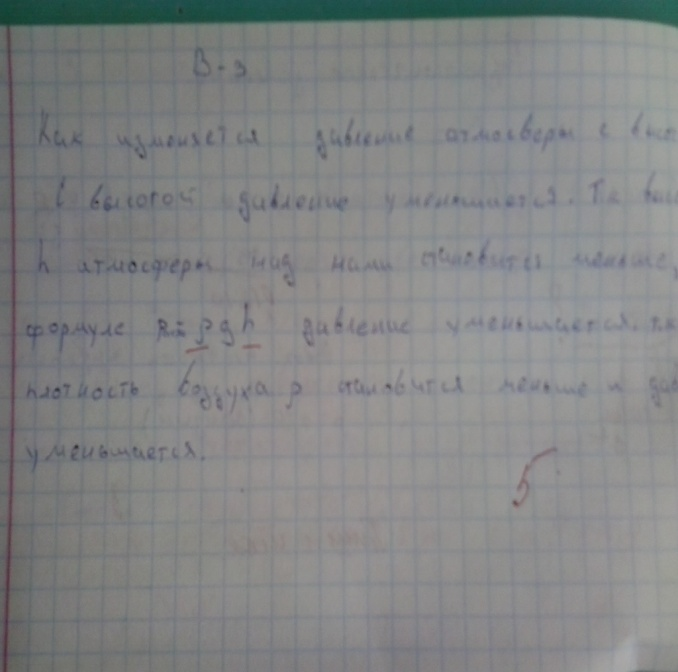 В-3
Как изменяется давление атмосверы с
С высотой давление уменьшается. Т.к
h атмосферы над нами становится меньше,
формуле P= ρgh давление уменьшается. т.к
плотность воздуха ρ становится меньше и
уменьшается.
5